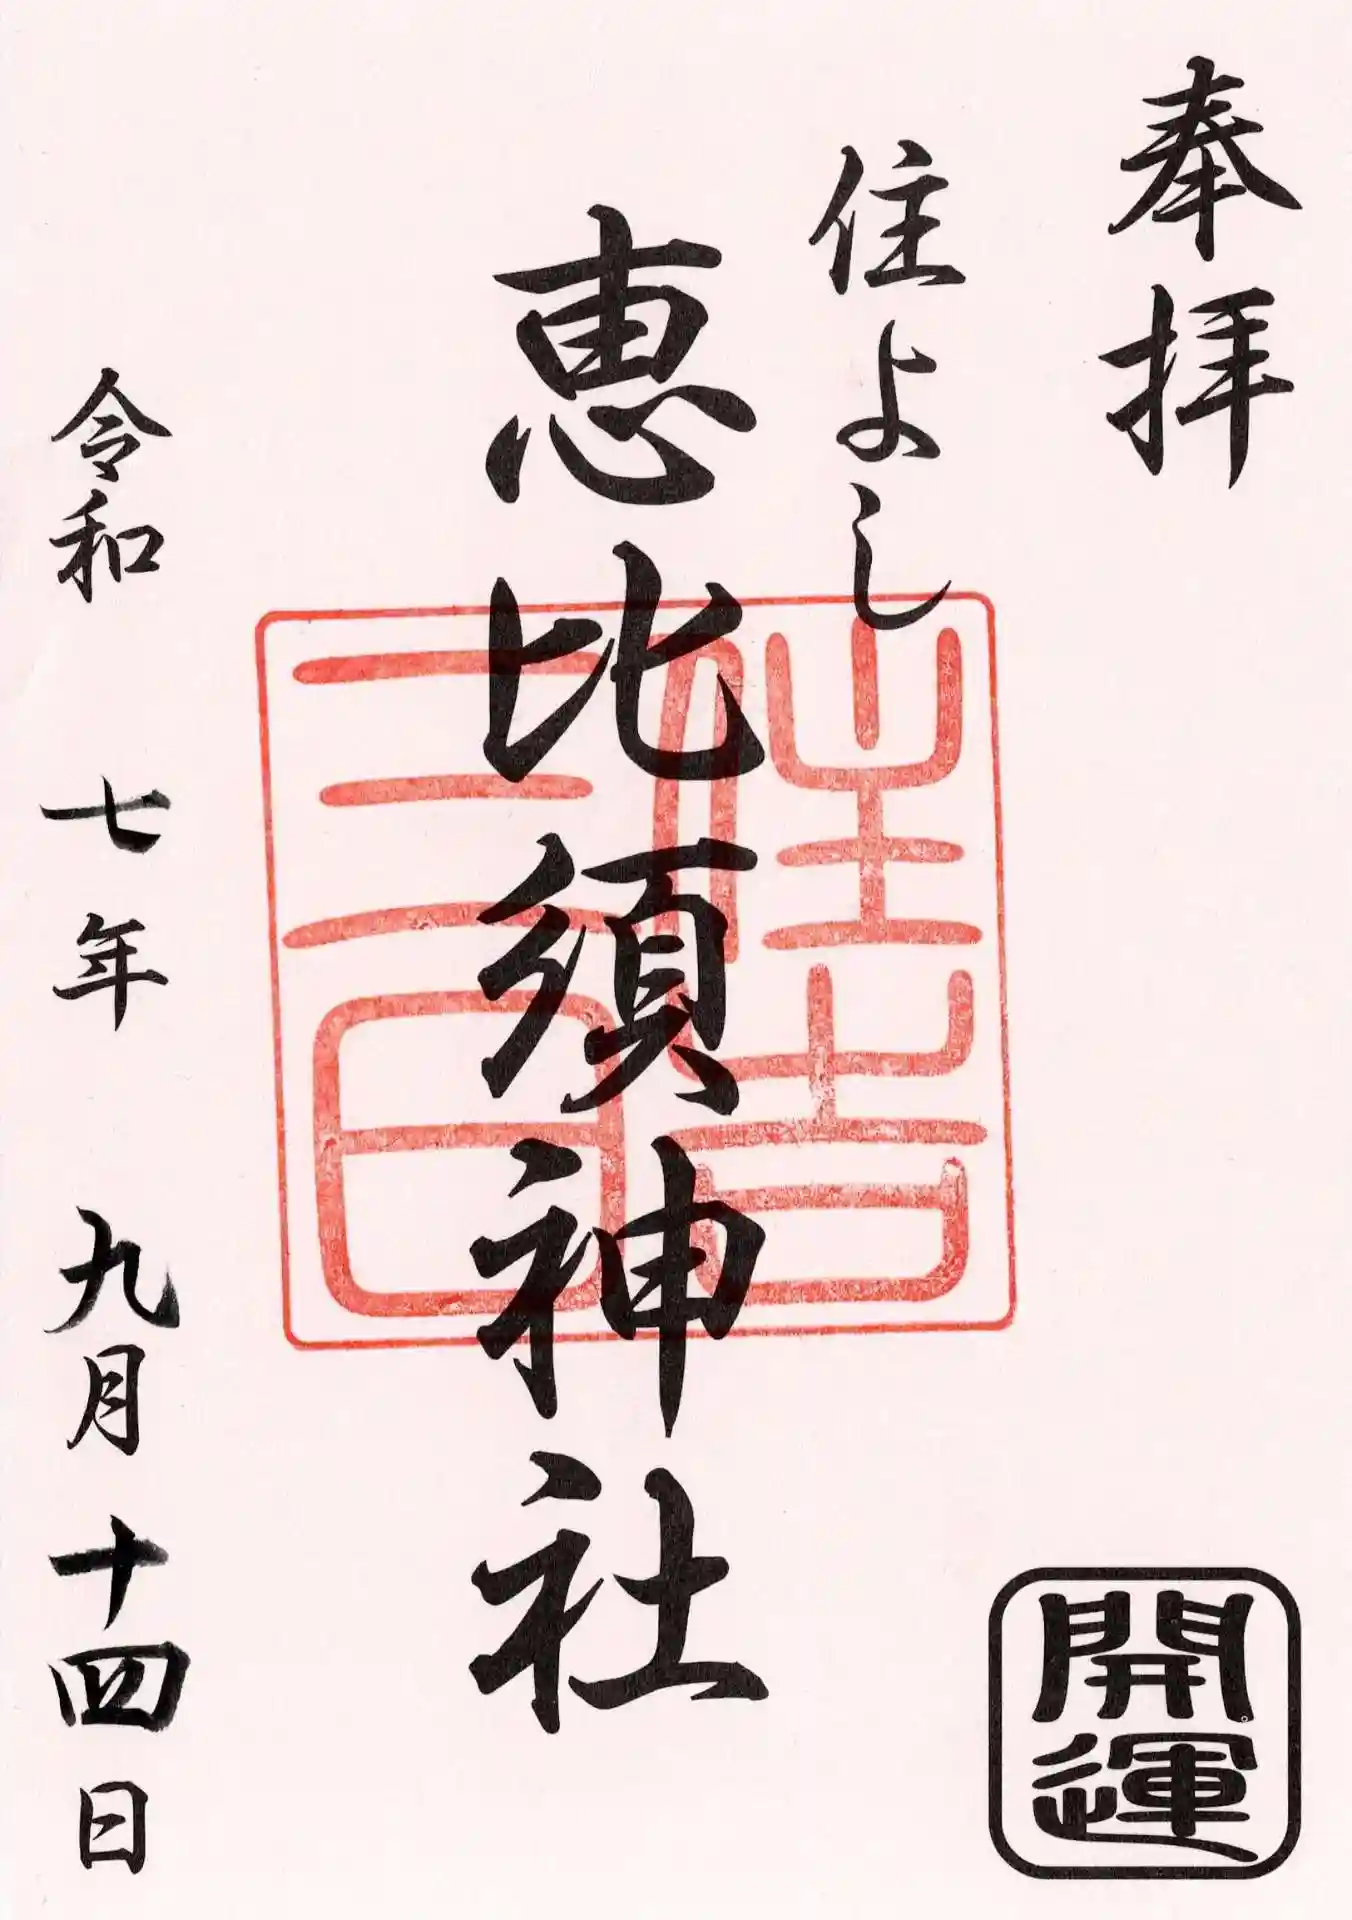 奉拝
住よし
恵比須神社
令和七年九月十四日
住吉
三日
開運